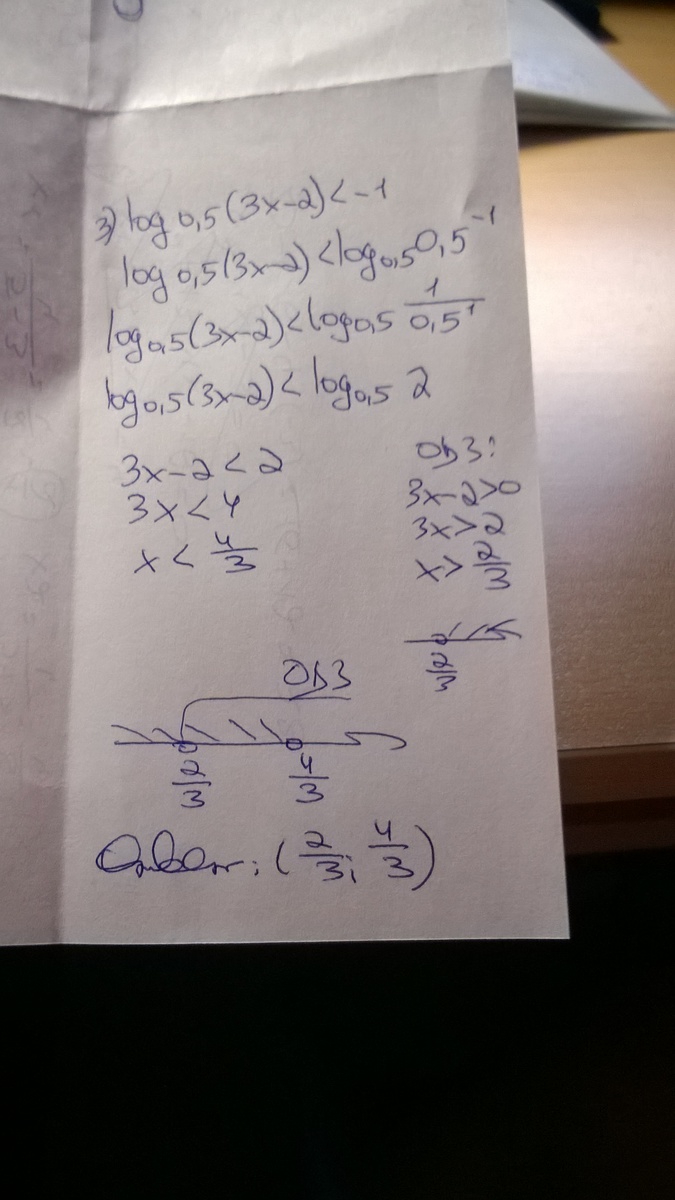 3) log 0,5 (3x-2) < -1
log 0,5 (3x-2) < log 0,5 0,5^-1
log 0,5 (3x-2) < log 0,5 1/0,5^1
log 0,5 (3x-2) < log 0,5 2
3x-2 < 2
3x < 4
x < 4/3
ОДЗ:
3x-2>0
3x>2
x> 2/3
2/3
ОДЗ
2/3 4/3
Ответ: (2/3; 4/3)